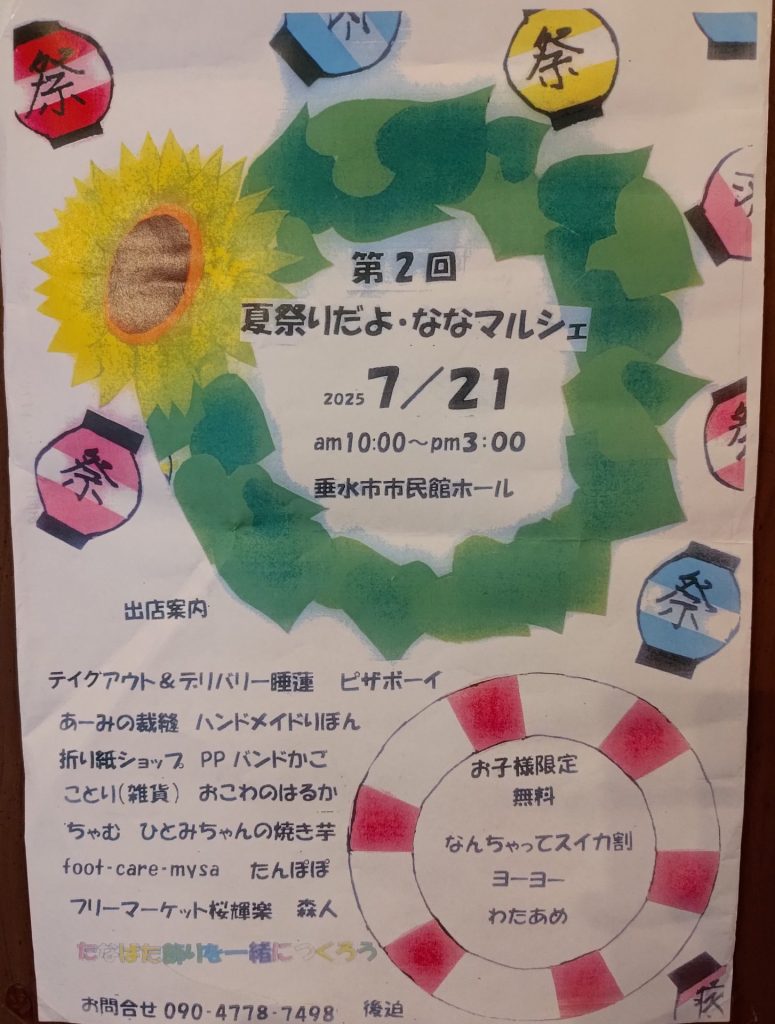 祭
祭
祭
第2回
夏祭りだよ・ななマルシェ
2025 7/21
am10:00～pm3:00
垂水市市民館ホール
祭
祭
祭
出店案内
テイグアウト＆デリバリー睡蓮 ピザボーイ
あーみの裁縫 ハンドメイドりぼん
折り紙ショップ PPバンドかご
ことり(雑貨) おこわのはるか
ちゃむ ひとみちゃんの焼き芋
foot-care-mysa たんぽぽ
フリーマーケット桜輝楽 森人
たなばた飾りを一緒につくろう
お子様限定
無料
なんちゃってスイカ割
ヨーヨー
わたあめ
お問合せ 090-4778-7498 後迫